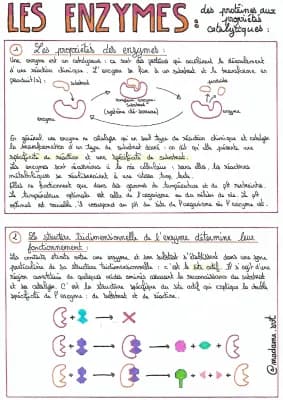 LES ENZYMES:
des protéines aux
propriétés
catalytiques:
1 Les propriétés des enzymes:
Une enzyme est un catalyseur: ce sont des protéines qui accélèrent le déroulement
d'une réaction chimique. L'enzyme se fixe à un substrat et le transforme en
produit(s):
substrat
produits
complexe enzyme-
substrat
enzyme
enzyme
En général, une enzyme ne catalyse qu'un seul type de réaction chimique et catalyse
la transformation d'un type de substrat donné: on dit qu'elle présente une
spécificité de réaction et une spécificité de substrat.
Les enzymes sont nécessaires à la vie cellulaire: sans elles, les réactions
métaboliques se réaliseraient à une vitesse trop lente.
Elles ne fonctionnent que dans des gammes de température et de pH restreintes.
La température optimale est celle de l'organisme ou du milieu de vie. Le pH
optimal est variable, il correspond au pH du site de l'organisme où l'enzyme est.
2 La structure tridimensionnelle de l'enzyme détermine leur
fonctionnement:
Les contacts étroits entre une enzyme et son substrat s'établissent dans une zone
particulière de sa structure tridimensionnelle: c'est le site actif. Il s'agit d'une
région constituée de quelques acides aminés assurant la reconnaissance du substrat
et sa catalyse. C'est la structure spécifique du site actif qui explique la double
spécificité de l'enzyme: de substrat et de réaction.
@madame.svt